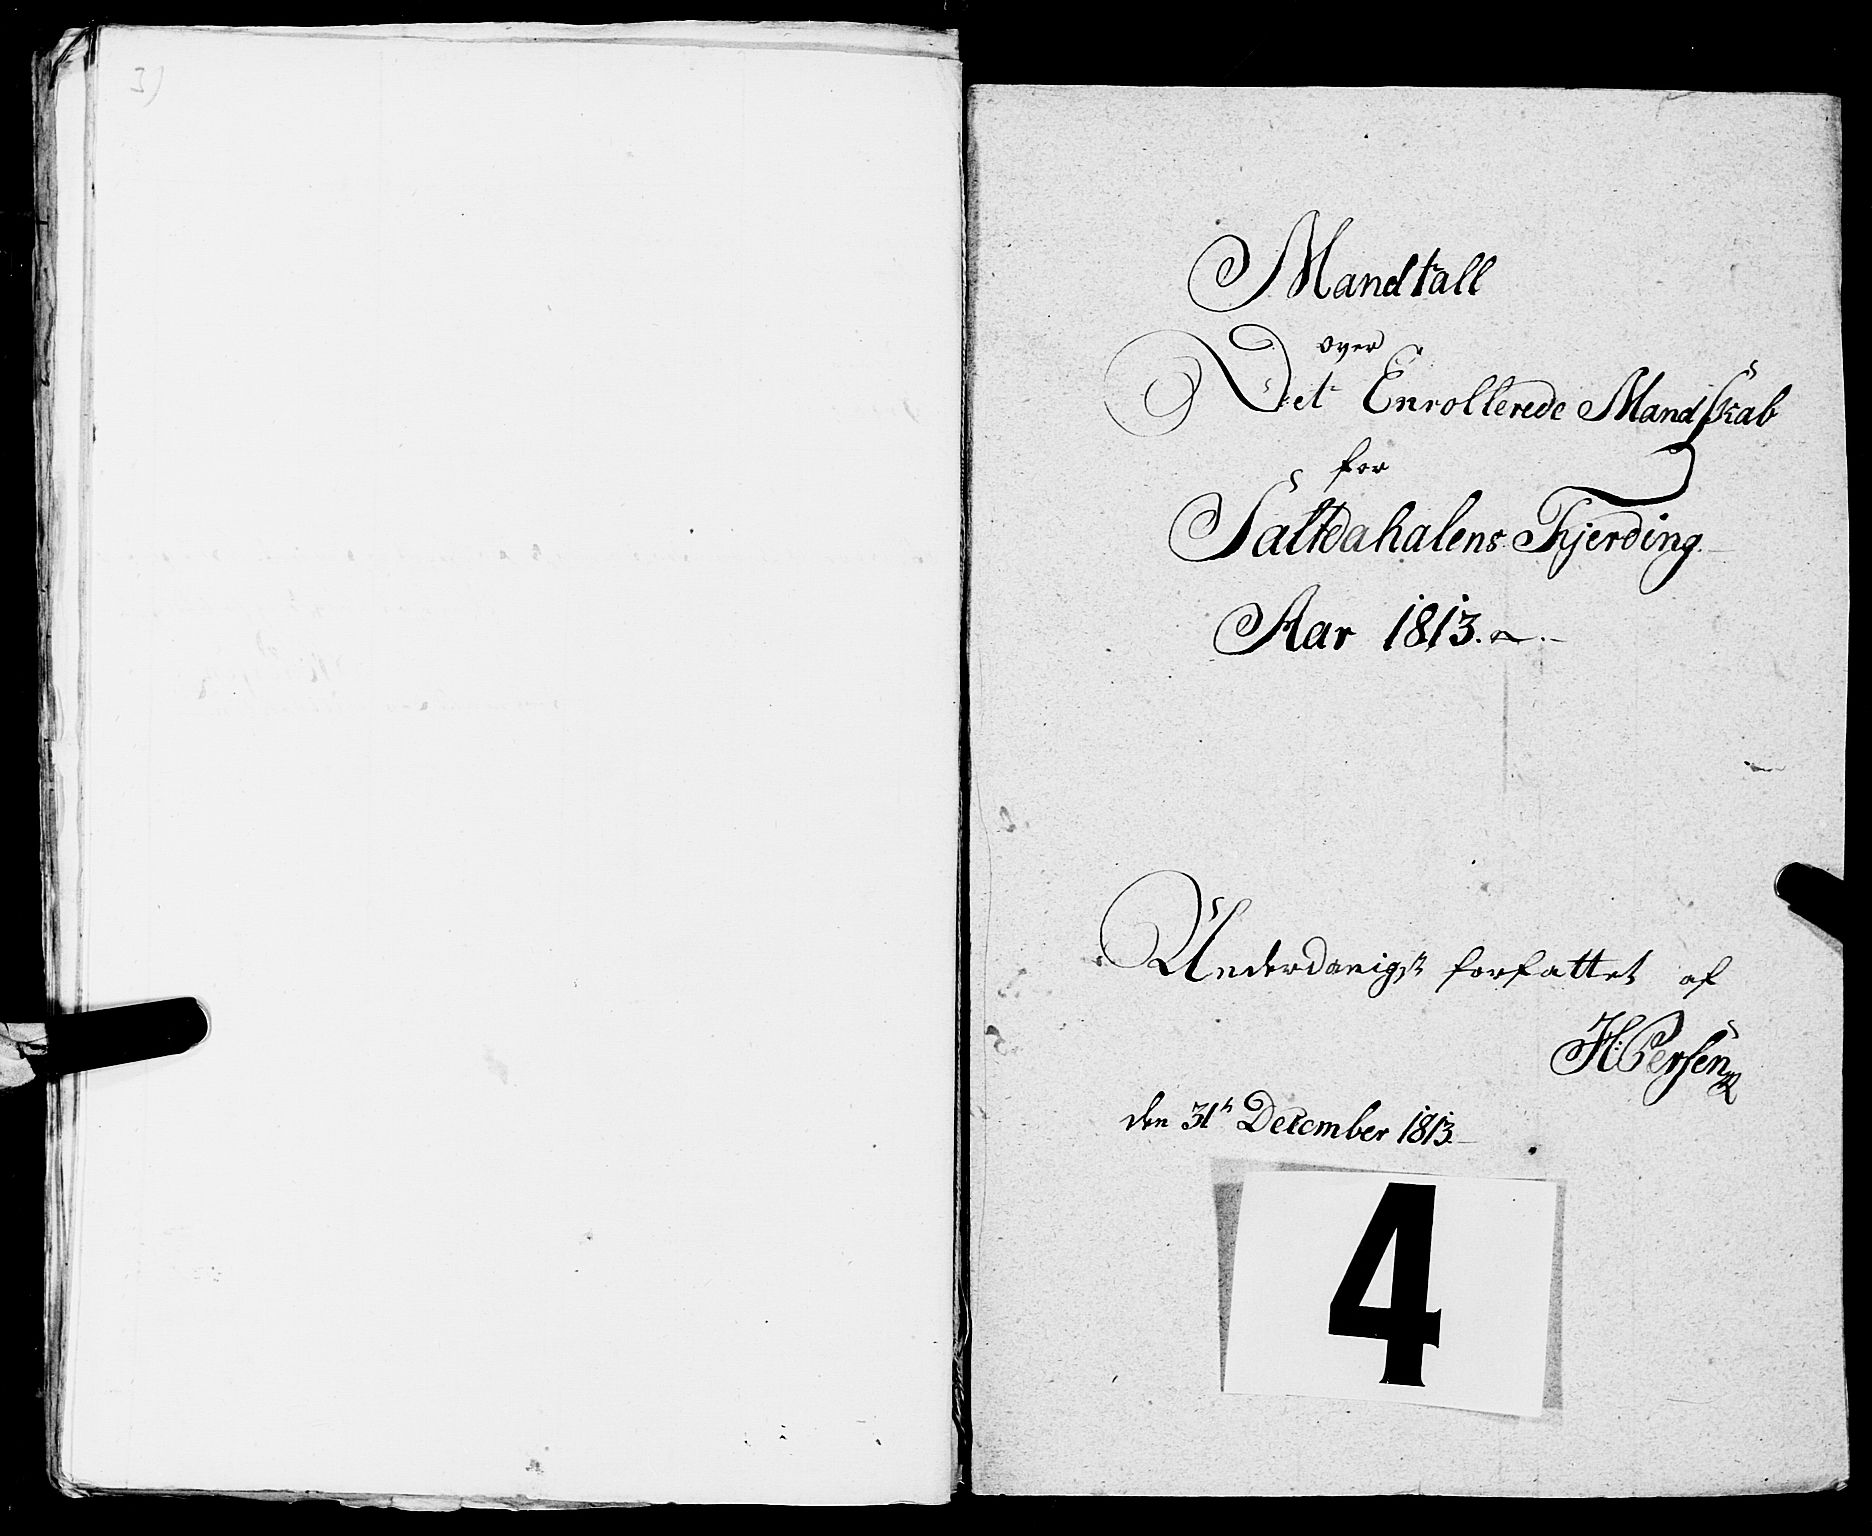 Mandtall
over
Det Enrollerede Mandskab
for
Saltdahalens Fjerding
Aar 1813.
Underdanigst forfattet af
H: Persen
den 31te December 1813
4